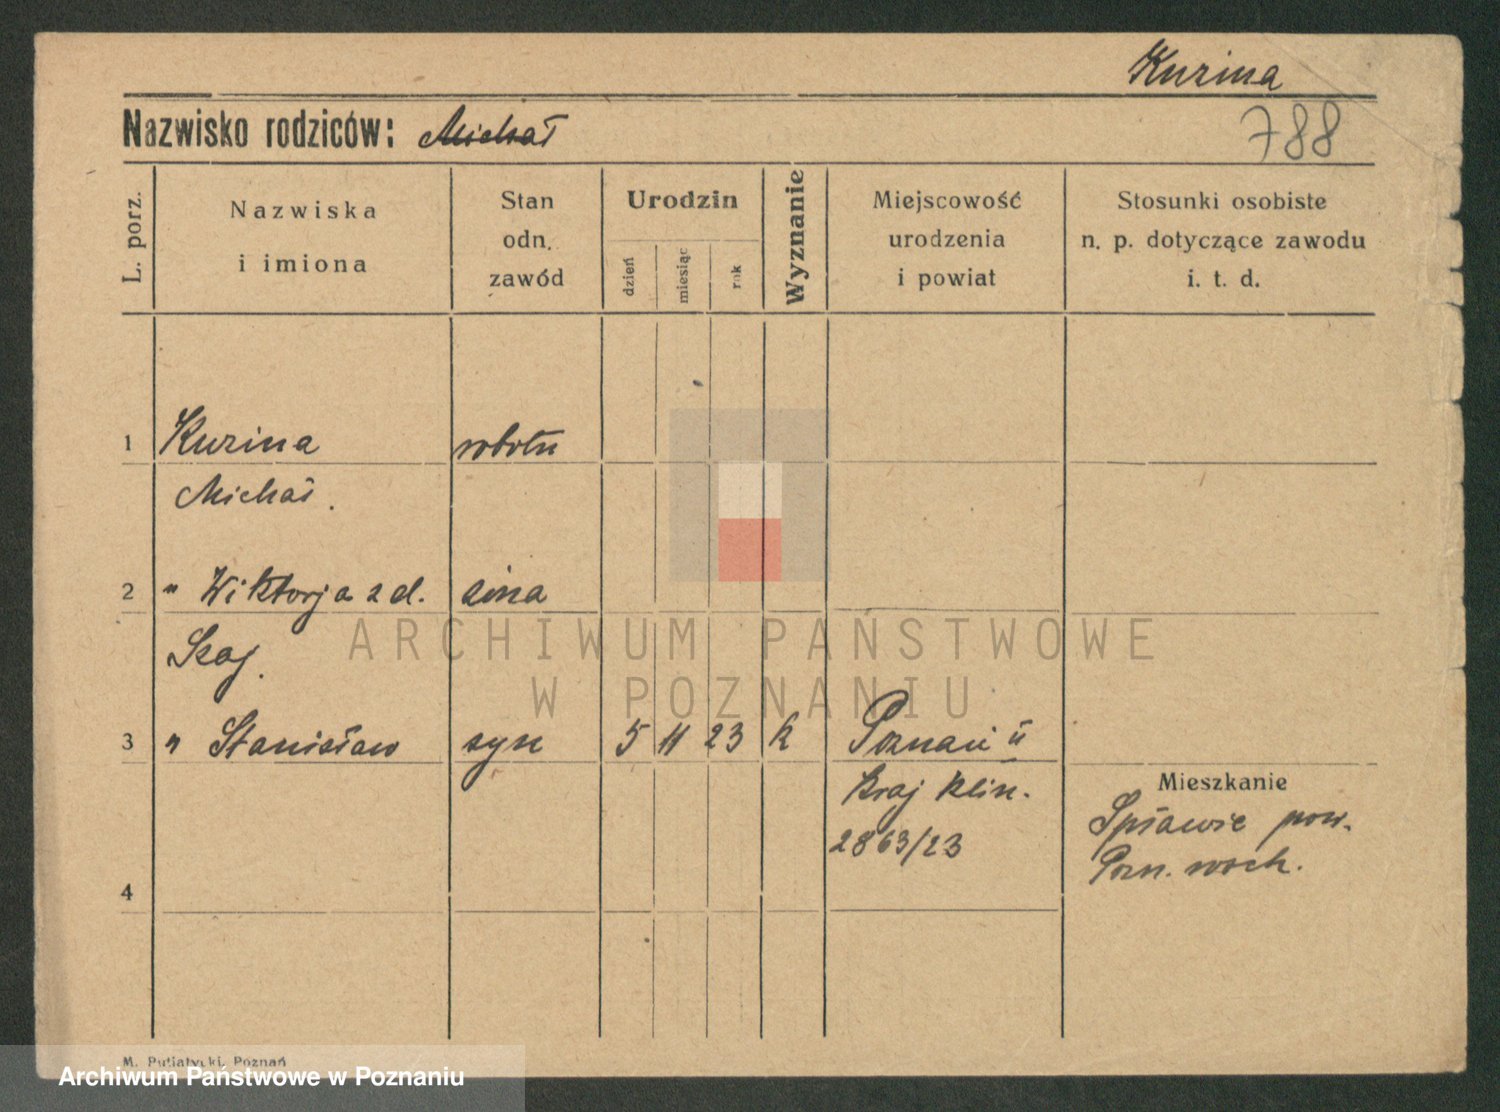 Kurina
Nazwisko rodziców: Michał
788
L. porz.
Nazwiska
i imiona
Stan
odn.
zawód
Urodzin
dzień
miesiąc
rok
Wyznanie
Miejscowość
urodzenia
i powiat
Stosunki osobiste
n. p. dotyczące zawodu
i. t. d.
1 Kurina robotn
Michał.
2 " Wiktorja z d. żona
Szaj.
ARCHIWUM PAŃSTWOWE
W POZNANIU
3 " Stanisław syn 5 11 23 k Poznań
Kraj klin.
2863/23
Mieszkanie
Spławie pow.
Pozn. wsch.
4
M. Putiatycki, Poznań
Archiwum Państwowe w Poznaniu